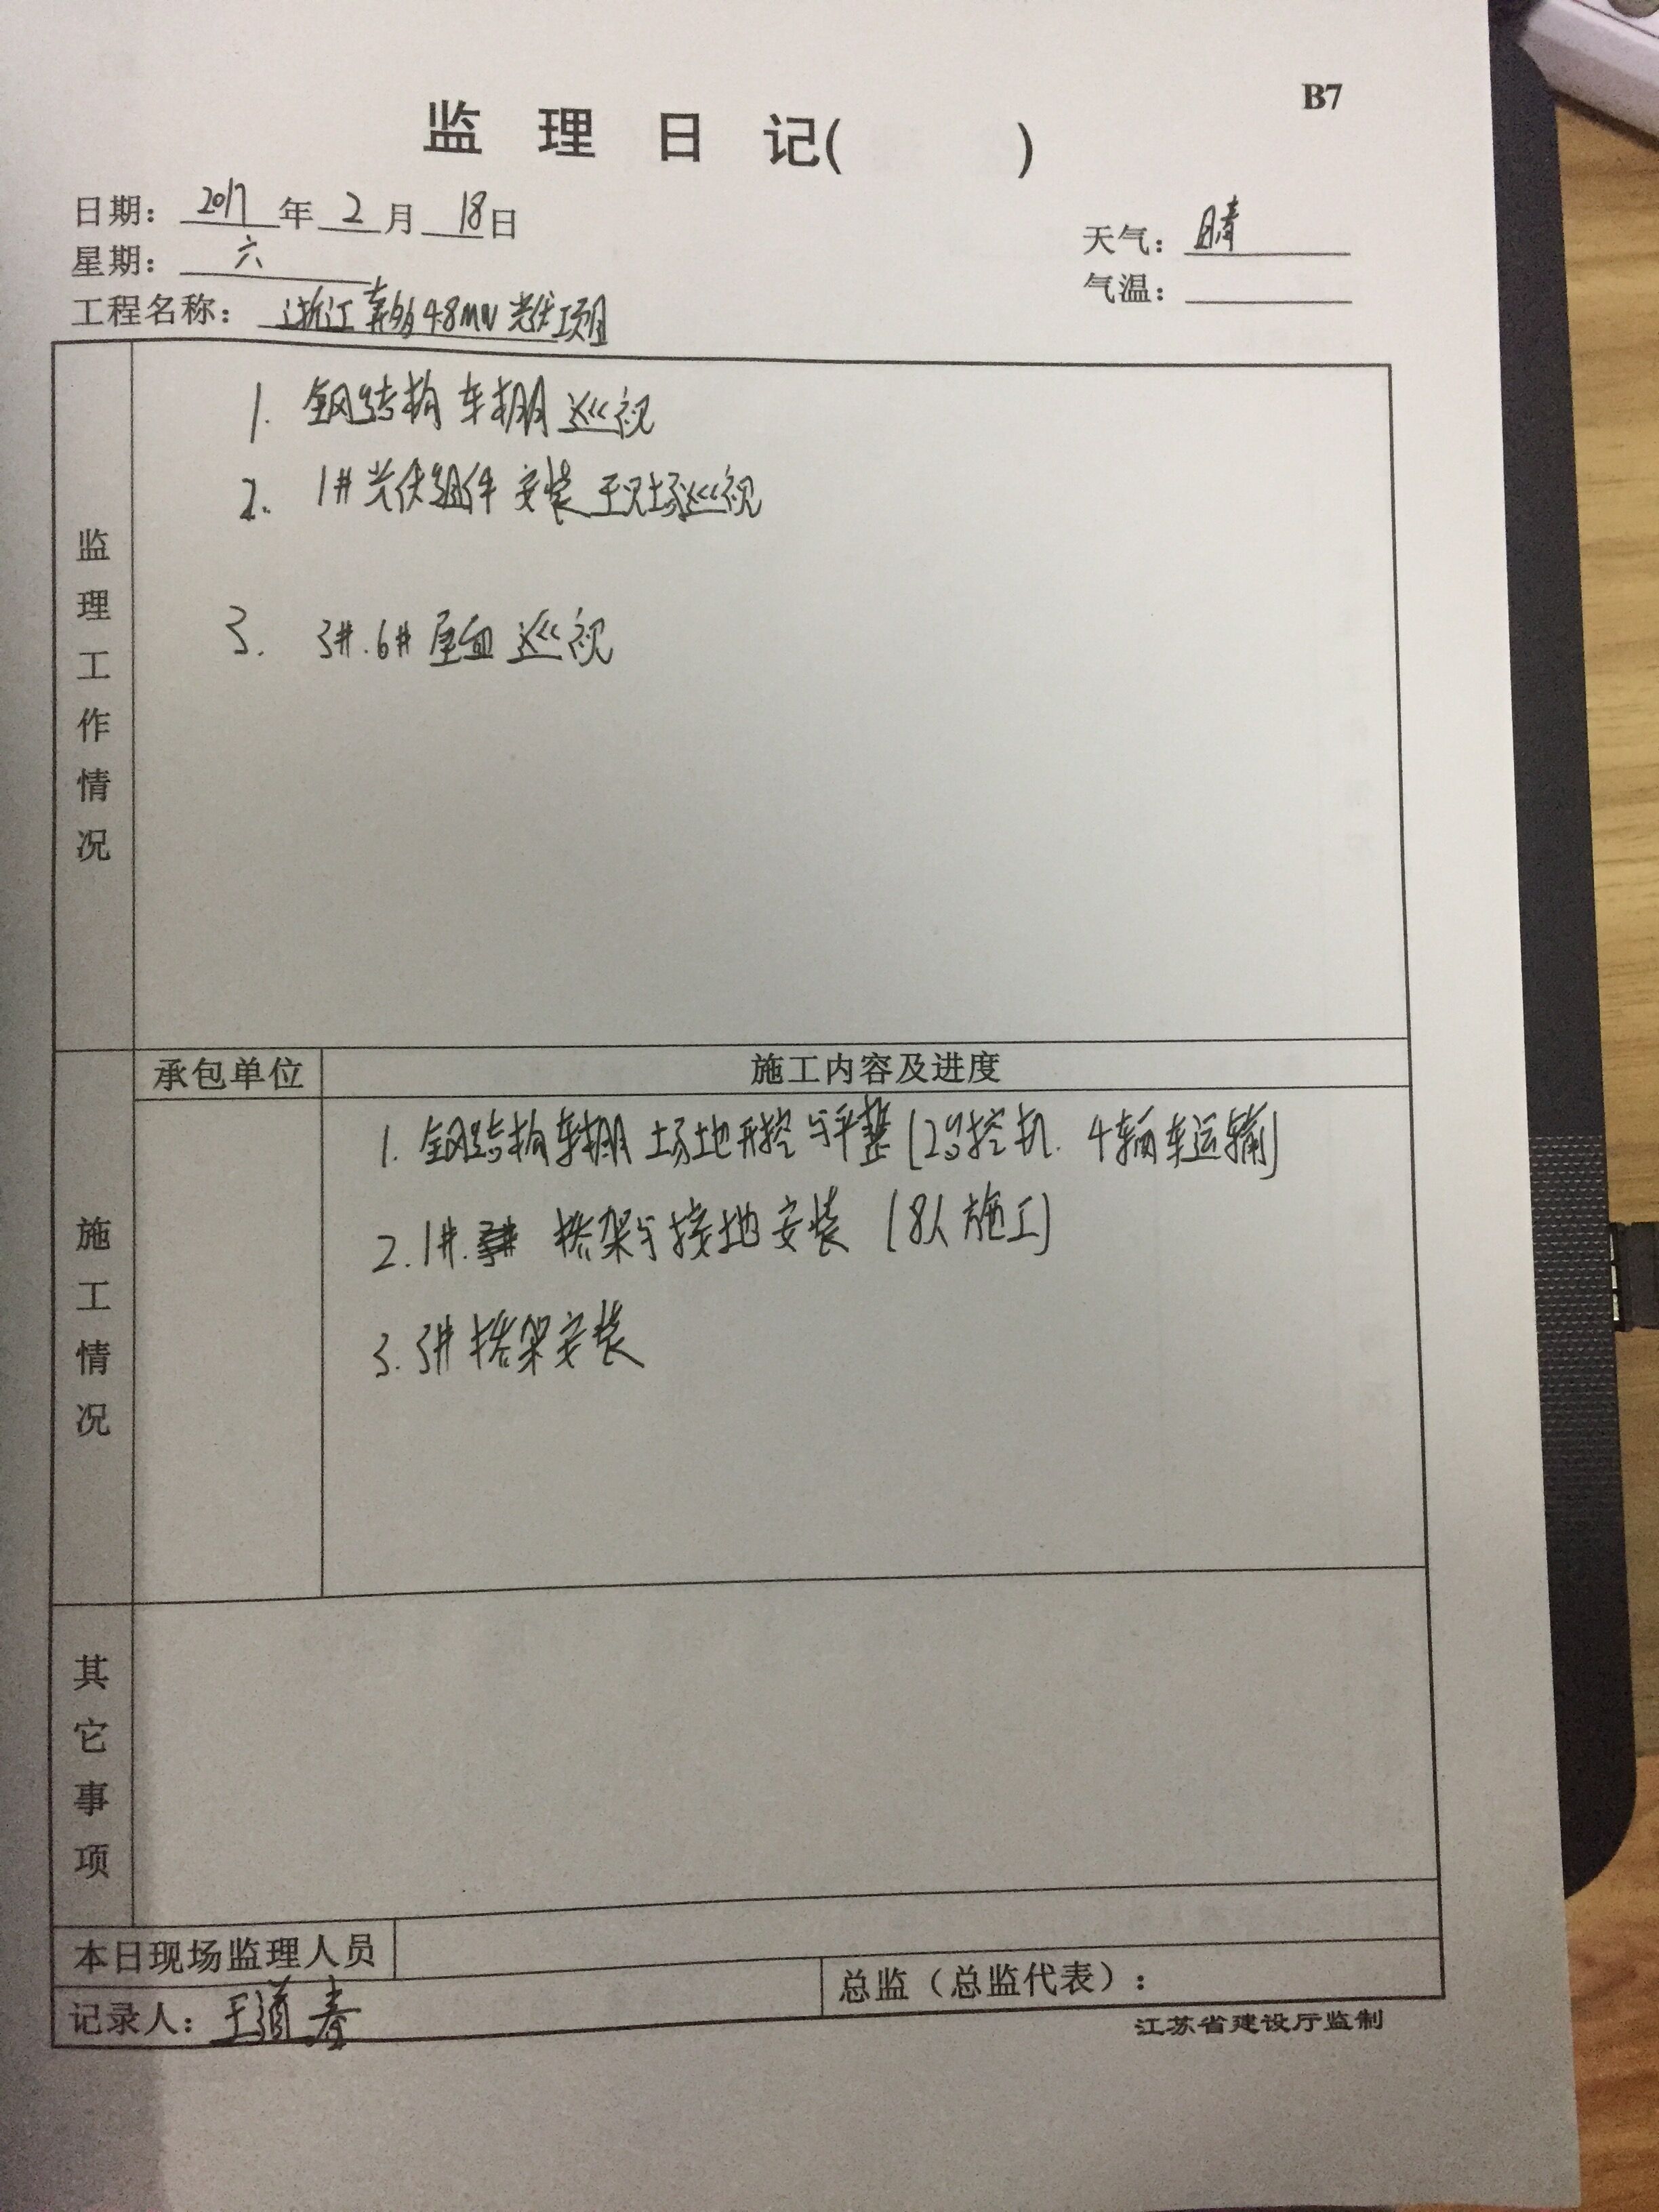 B7
监理日记( )
日期：2017年2月18日
天气：晴
星期：六
气温：
工程名称：浙江 4.8MW光伏项目
监理工作情况
1. 钢结构车棚巡视
2. 1#光伏组件安装现场巡视
3. 3#.6#屋面巡视
承包单位 施工内容及进度
施工情况
1. 钢结构车棚场地开挖与平整(2 挖机. 4辆车运输)
2. 1#. 桥架与接地安装(8人施工)
3. 3#桥架安装
其它事项
本日现场监理人员
记录人：王道春
总监（总监代表）：
江苏省建设厅监制